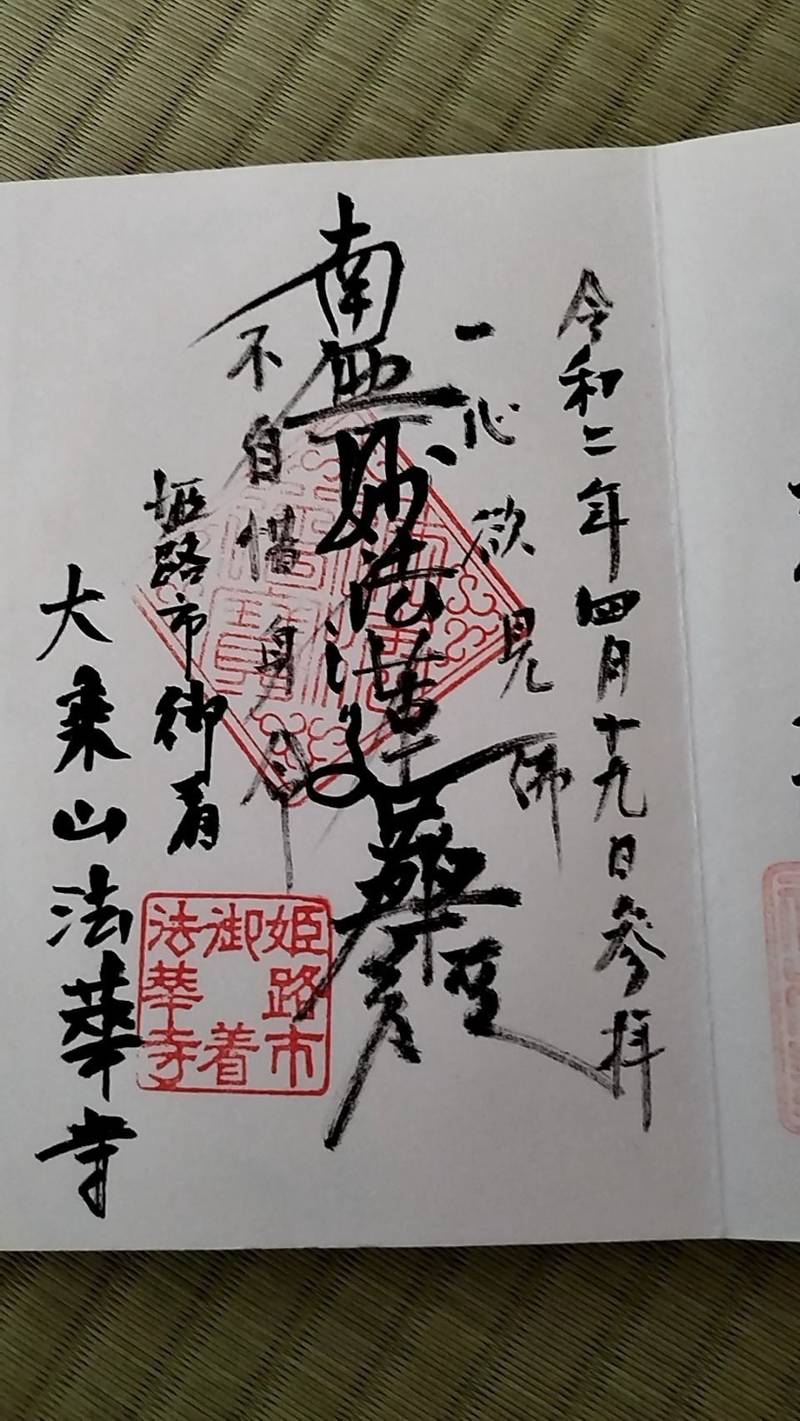 令和二年四月十九日参拝
一心欲見佛
南無妙法蓮華経
不自惜身命
姫路市御着
大乗山法華寺
姫路市
御着
法華寺